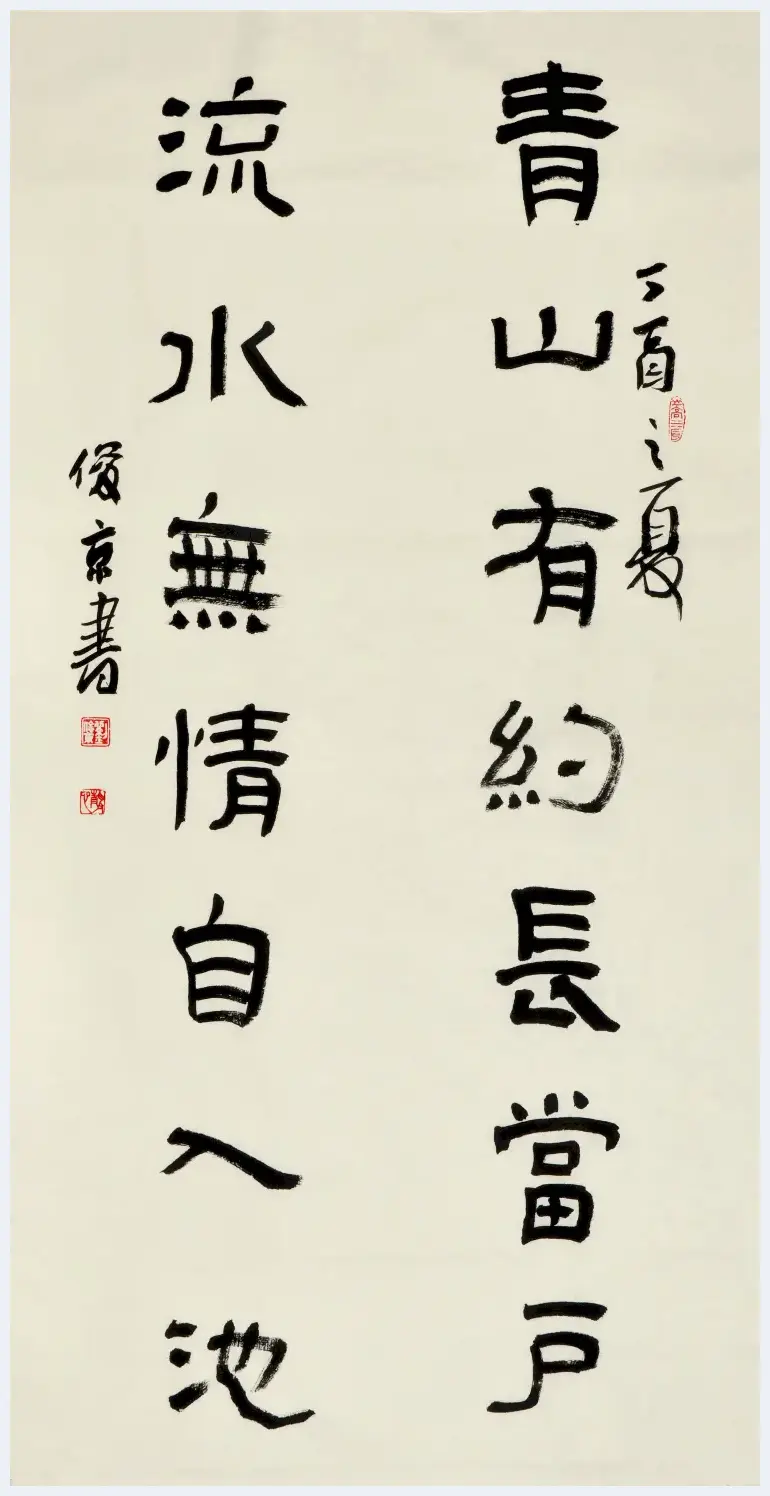 青山有約長當戶
丁酉之夏
流水無情自入池
俊京書